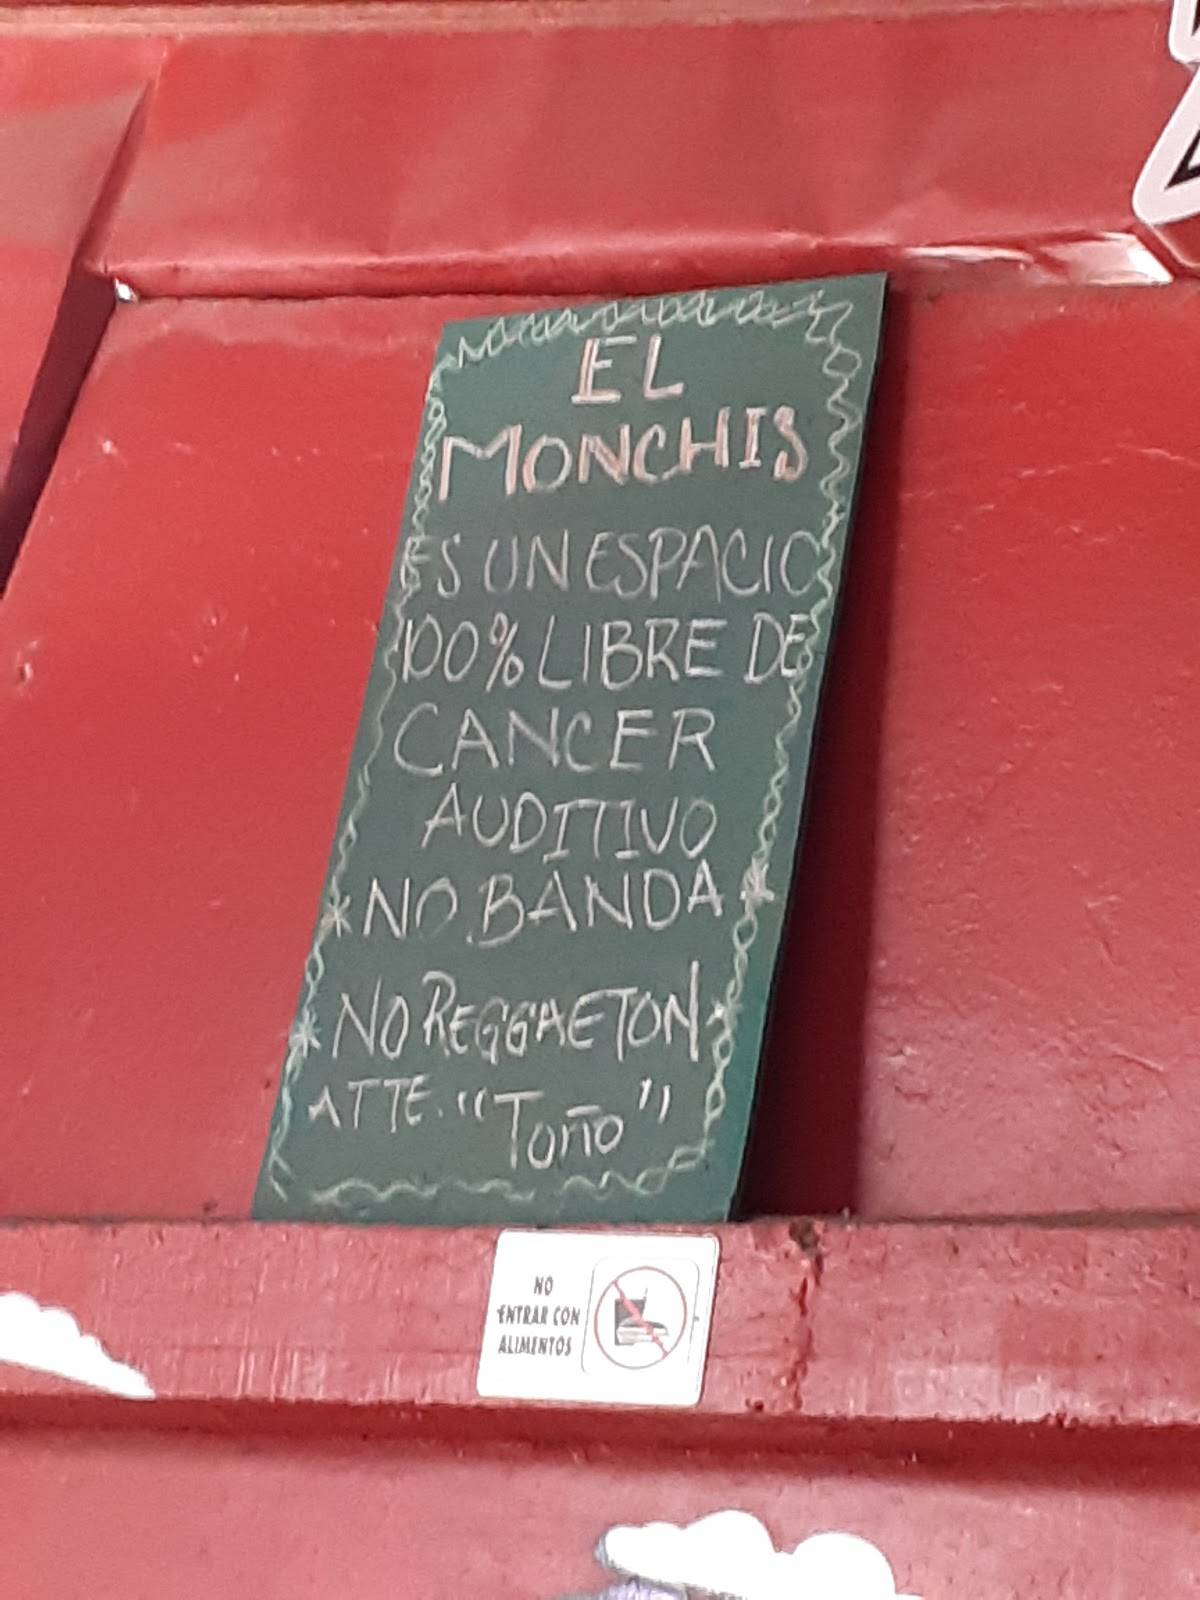 EL
MONCHIS
ES UN ESPACIO
100% LIBRE DE
CANCER
AUDITIVO
*NO BANDA*
*NO REGGAETON*
ATTE. "Toño"
NO
ENTRAR CON
ALIMENTOS